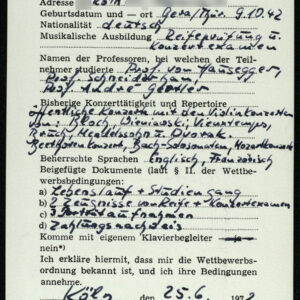 Adresse Köln
Geburtsdatum und – ort Gera/Thür. 9.10.42
Nationalität deutsch
Musikalische Ausbildung Reifeprüfung u.
Konzertexamen
Namen der Professoren, bei welchen der Teil-
nehmer studierte Prof. von Hausegger,
Prof. Schneiderhan
Prof. André Gertler
Bisherige Konzerttätigkeit und Repertoire
öffentliche Konzerte mit den Violinkonzerten
von: Bloch, Wieniawski, Vieuxtemps,
Bruch, Mendelssohn u. Dvorak.
Beethovenkonzert, Bach-Solosonaten, Mozartkonzerte
Beherrschte Sprachen Englisch, Französisch
Beigefügte Dokumente (laut § II. der Wettbe-
werbsbedingungen:
a) Lebenslauf + Studiengang
b) 2 Zeugnisse von Reife + Konzertexamen
c) 3 Portraitaufnahmen
d) Zahlungsnachweis
Komme mit eigenem Klavierbegleiter – ja
nein*)
Ich erkläre hiermit, dass mir die Wettbewerbs-
ordnung bekannt ist, und ich ihre Bedingungen
annehme.
Köln den 25.6. 197